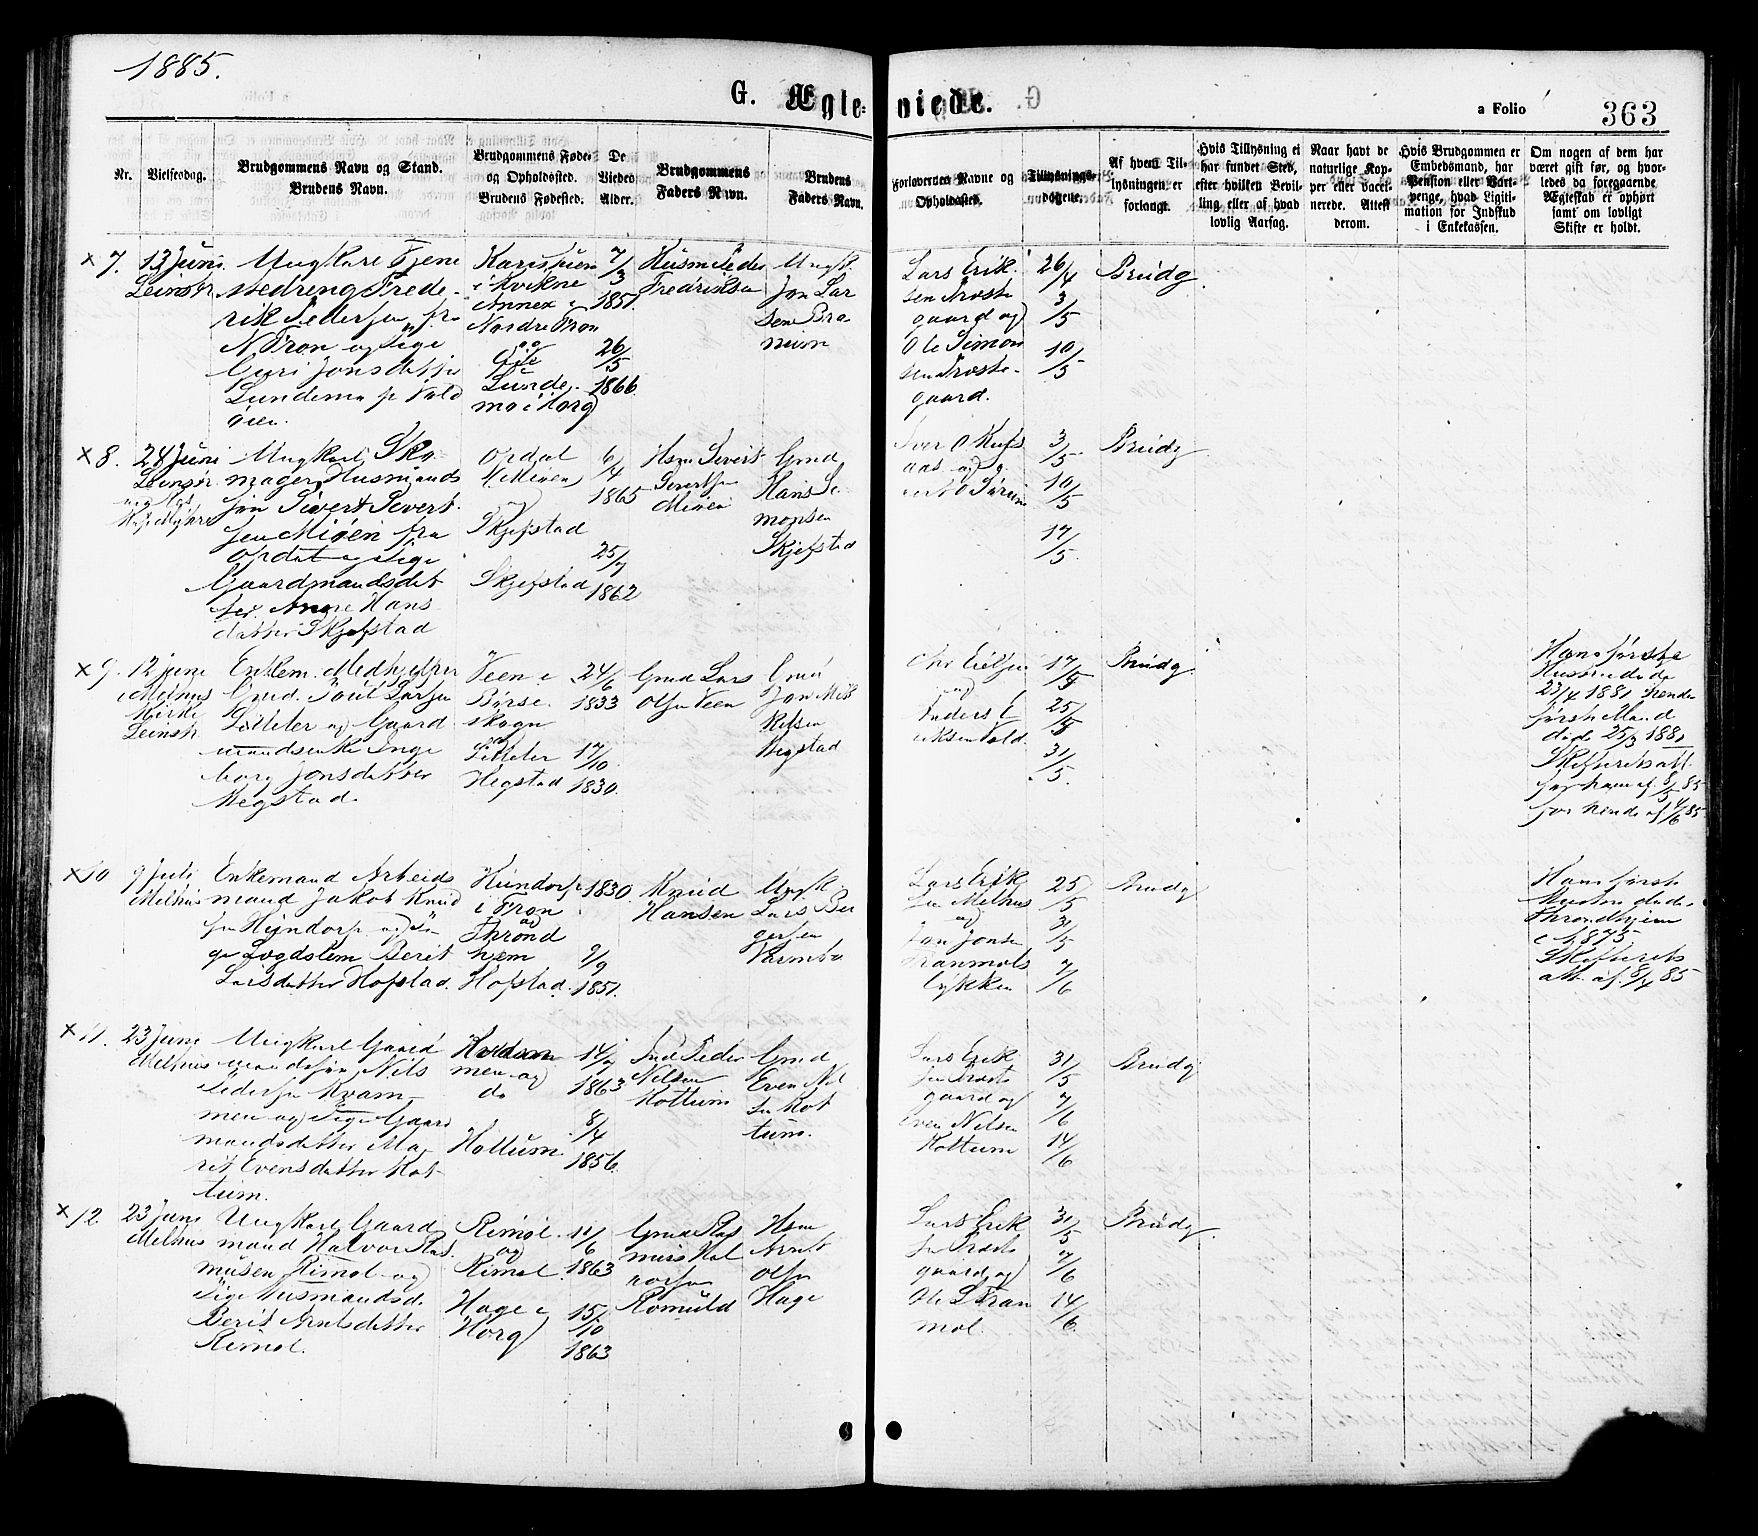 1885.
G. Ægte-
viede.
a Folio
363
Nr.
Vielsesdag.
Brudgommens Navn og Stand.
Brudens Navn.
Brudgommens Føde-
og Opholdssted.
Brudens Fødested.
De
Viedes
Alder.
Brudgommens
Faders Navn.
Brudens
Faders Navn.
Forlovernes Navne og
Opholdssted.
Tillysnings-
dagene.
Af hvem Til-
lysningen er
forlangt.
Hvis Tillysning ei
har fundet Sted,
efter hvilken Bevil-
ling eller af hvad
lovlig Aarsag.
Naar havt de
naturlige Kop-
per eller vacci-
nerede. Attest
derom.
Hvis Brudgommen er
Embedsmand, har
Pension eller Vart-
penge, hvad Ligiti-
mation for Indskud
i Enkekassen.
Om nogen af dem har
været gift før, og hvor-
ledes da foregaaende
Ægteskab er ophørt
samt om lovligt
Skifte er holdt.
× 7.
13 Juni
Leinstr
Ungkarl Tjene
stedreng Frede-
rik Pedersen fra
N Tron og Pige
Guri Jonsdatter
Lundemo
øien.
i Kvikne
Annex i
Nordre Tron
og
Lunde-
mo i Horg
7/3
1851.
26/5
1866
Husm Peder
Fredriksen
Ungk.
Jon Lar
sen
Lars Erik-
sen Prøste
gaard og
Ole Simon
sen Prøste-
gaard.
26/4
3/5
10/5
Brudg.
× 8.
24 Juni
Leinstr
Ungkarl, Sko-
mager, Husmands
søn Sivert Sivert-
sen Mioen fra
Opdal og Pige
Gaardmandsdat
ter Anne Hans
datter Skjefstad
Opdal
og
Skjefstad
Skjefstad
6/4
1865
25/7
1862
Hsm Sivert
Sivertsen
Gmd
Hans Si
monsen
Skjefstad
3/5
10/5
17/5
Brudg
× 9.
12 Juni
Melhus
Kirke
Leinstr
Enkem. Medhjelper
Gmd. Poul Larsen
og Gaard
mandsenke Inge
borg Jonsdatter
Hegstad.
Veen i
Børse-
skogn
og
Hegstad
24/6
1833
17/10
1830.
Gmd Lars
Olsen Veen
Gmd
Jon Mik
kelsen
Hegstad
og
Anders E
riksen Vold
17/5
25/5
31/5.
Brudg
Hans første
Hustru døde
23/4 1881 hendes
første Mand
døde 25/3 1881
Skifteretsatt.
for ham af 8/5 85
for hende af 4/6 85
× 10
9 Juli
Melhus
Enkemand Arbeids
mand Jakob Knud
sen Hundorp og Pi-
ge Logdslem Berit
Larsdatter Hofstad.
Hundorp
i Fron
og
Thrond
hjem
Hofstad.
1830
9/9
1851.
Knud
Hansen
Ungk
Lars Ber
gersen
Varmbo
Lars Erik
sen Melhus
og
Jon Jonsen
Tranmæls
løkken
25/5
31/5
7/6
Brudg
Hans første
Hustru døde i
Throndhjem
i 1875
Skifterets
att. af 8/4 85
× 11.
23 Juni
Melhus
Ungkarl Gaard
mandssøn Nils
Pedersen Kvam-
men og Pige Gaard
mandsdatter Ma-
rit Evensdatter Kot
tum.
men og
do
Kottum
14/7
1863
8/4
1856.
Gmd Peder
Nilsen
Kottum
Gmd
Even Nil
sen Kot
tum.
Lars Erik
sen Prøste
gaard og
Even Nilsen
Kottum
31/5
7/6
14/6
Brudg
× 12.
23 Juni
Melhus
Ungkarl Gaard
mand Halvor Ras
musen Rimol og
Pige Husmandsd.
Berit Arntsdatter
Rimol.
Rimol
og
Rimol
Hage i
Horg
11/6
1863
15/10
1863
Gmd Ras
mus Hal
vorsen
Romuld
Hsm
Arnt
Olsen
Hage
Lars Erik
sen Prøste
gaard og
Ole L Tran
mol.
31/5
7/6
14/6.
Brudg.